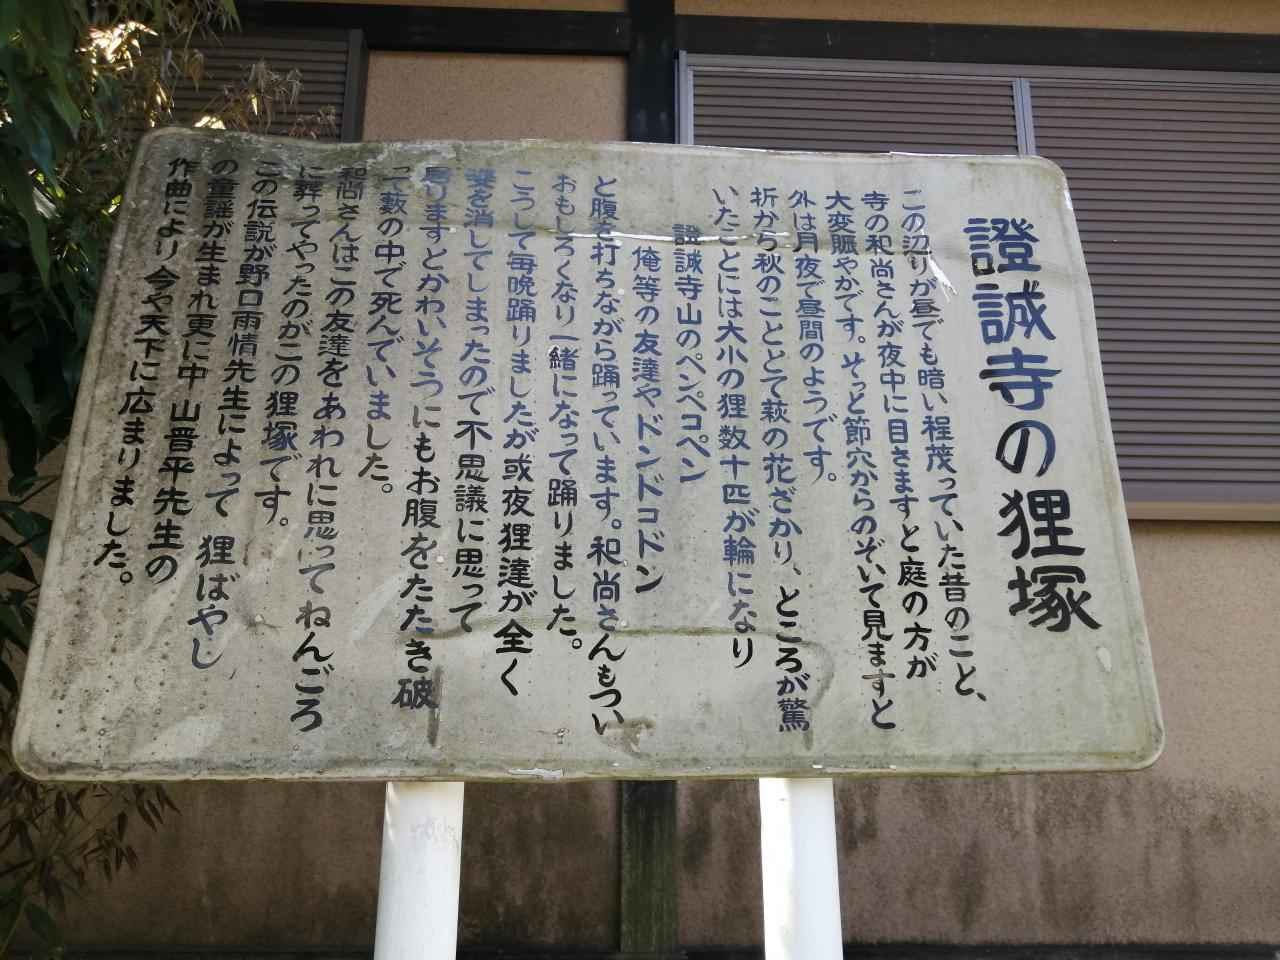 證誠寺の狸塚
この辺りが昼でも暗い程茂っていた昔のこと、
寺の和尚さんが夜中に目さますと庭の方が
大変賑やかです。そっと節穴からのぞいて見ますと
外は月夜で昼間のようです。
折から秋のこととて萩の花ざかり、ところが驚
いたことには大小の狸数十匹が輪になり
證誠寺山のペンペコペン
俺等の友達やドンドコドン
と腹を打ちながら踊っています。和尚さんもつい
おもしろくなり一緒になって踊りました。
こうして毎晩踊りましたが或夜狸達が全く
姿を消してしまったので不思議に思って
居りますとかわいそうにもお腹をたたき破
って藪の中で死んでいました。
和尚さんはこの友達をあわれに思ってねんごろ
に葬ってやったのがこの狸塚です。
この伝説が野口雨情先生によって狸ばやし
の童謡が生まれ更に中山晋平先生の
作曲により今や天下に広まりました。